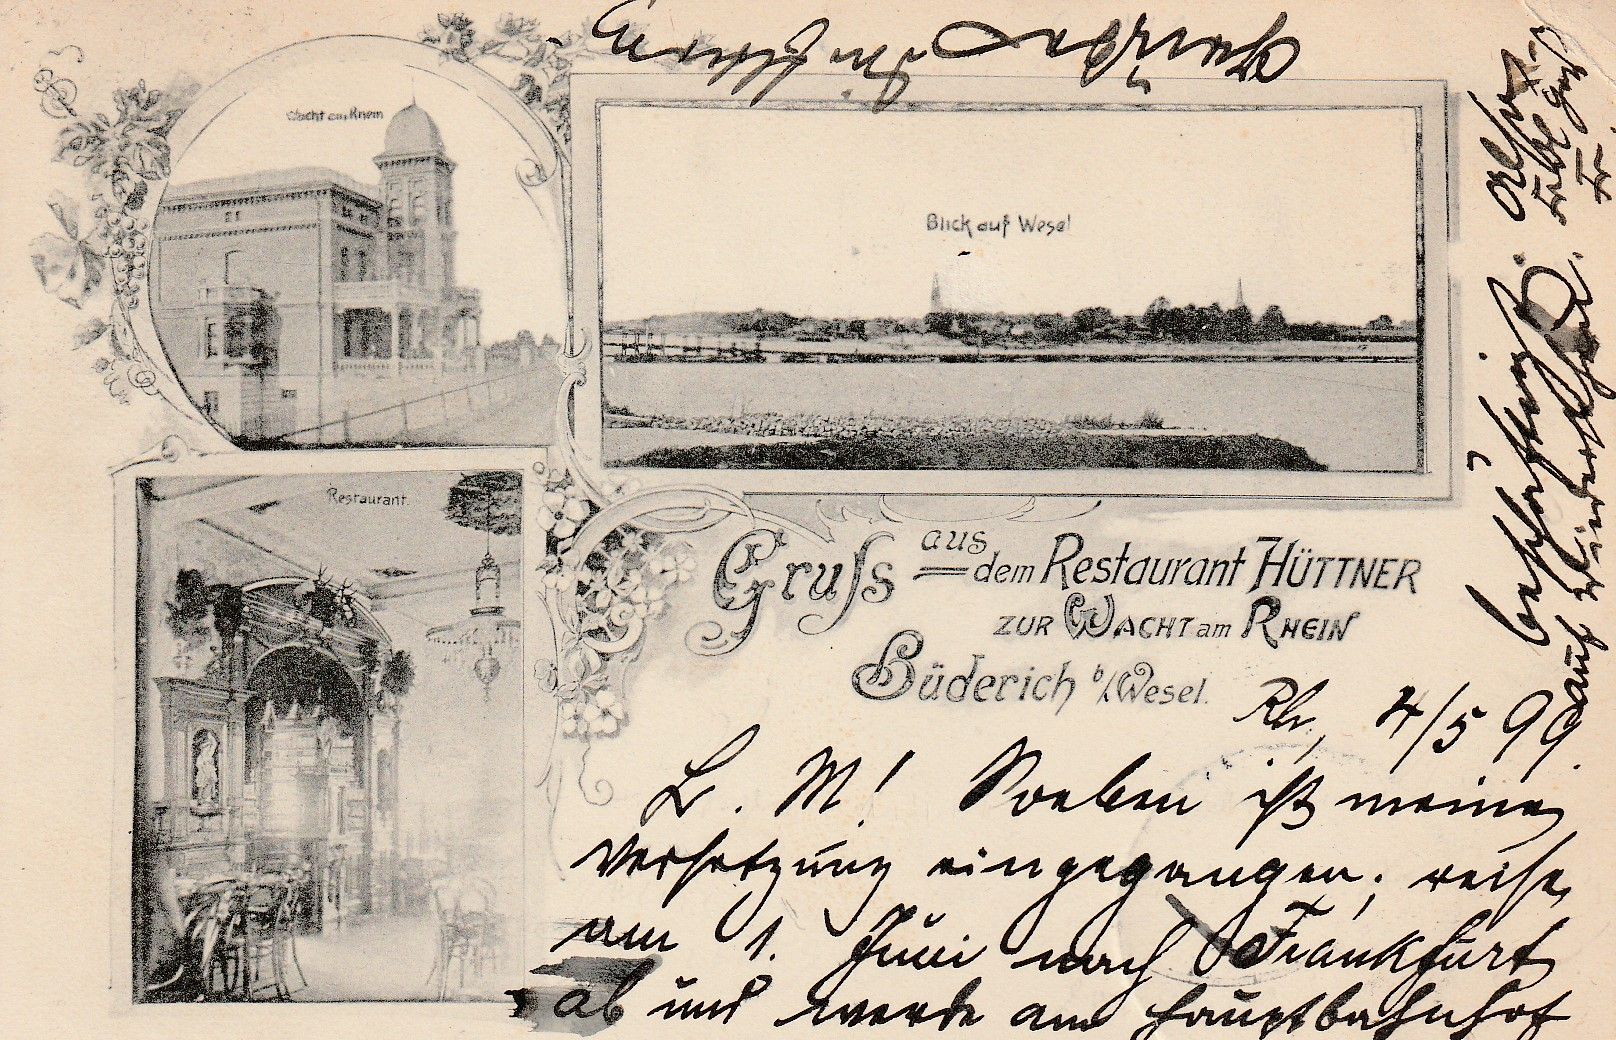 Wacht am Rhein
Blick auf Wesel
Restaurant
Gruss aus
dem Restaurant HÜTTNER
ZUR WACHT am RHEIN
Büderich b/Wesel.
Rh, 4/5 99.
L. M! Soeben ist meine
Versetzung eingegangen; reise
am 1. Juni nach Frankfurt
ab und werde am Hauptbahnhof
beschäftigt. Also
auf Wiedersehen.